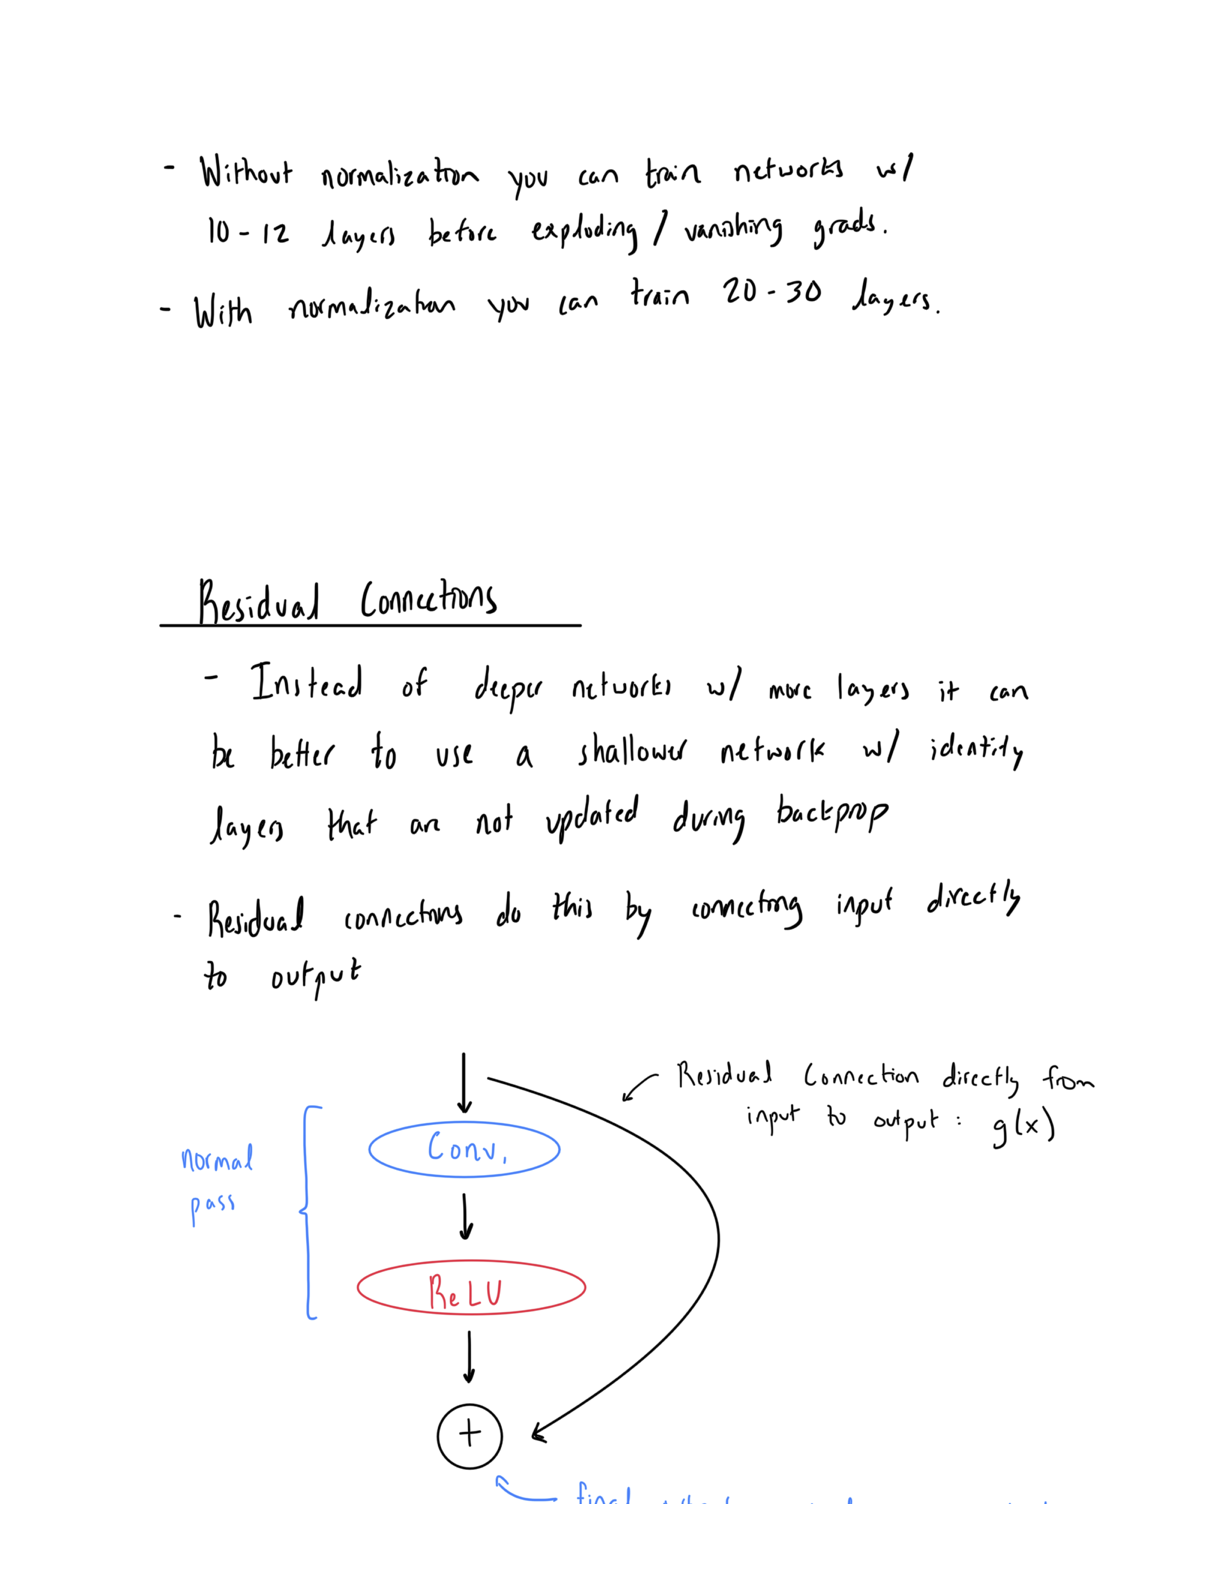 - Without normalization you can train networks w/
10-12 layers before exploding / vanishing grads.
- With normalization you can train 20-30 layers.
Residual Connections
- Instead of deeper networks w/ more layers it can
be better to use a shallower network w/ identity
layers that are not updated during backprop
- Residual connections do this by connecting input directly
to output
Residual Connection directly from
input to output: g(x)
normal
pass
Conv.
ReLU
+
final